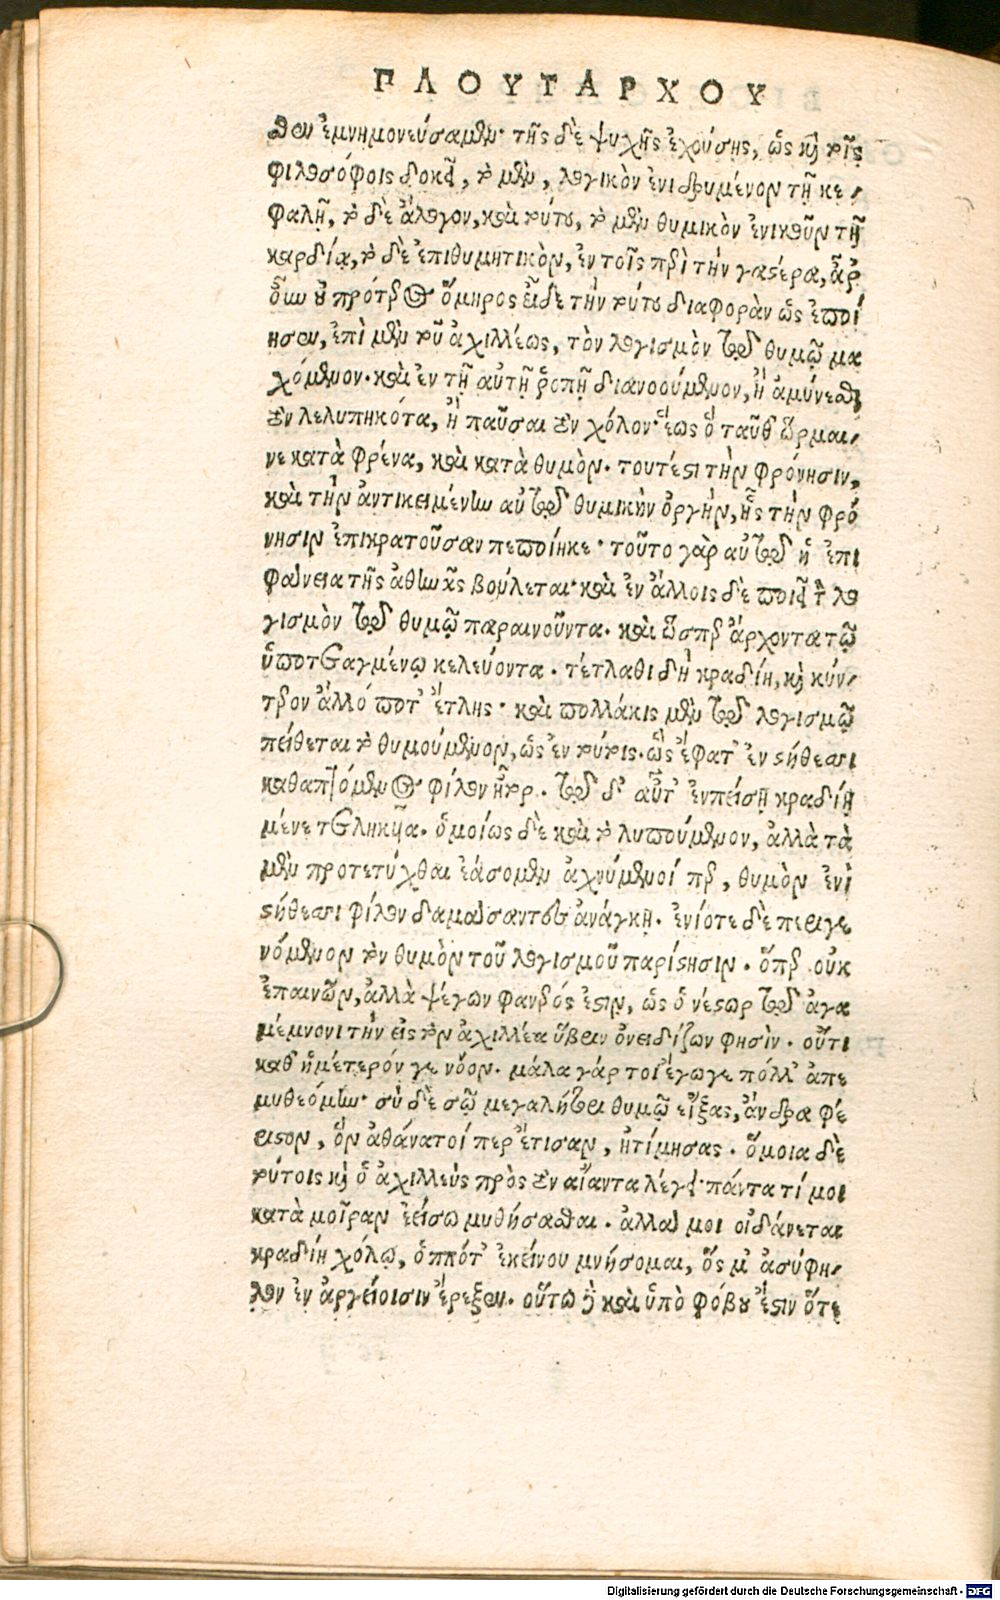 ΠΛΟΥΤΑΡΧΟΥ
θεν ἐμνημονεύσαμεν· τῆς δὲ ψυχῆς ἐχούσης, ὡς καὶ τοῖς
φιλοσόφοις δοκεῖ, τὸ μὲν, λογικὸν ἐνιδρυμένον τῇ κε-
φαλῇ, τὸ δὲ ἄλογον, καὶ τούτου, τὸ μὲν θυμικὸν ἐνικοῦν τῇ
καρδίᾳ, τὸ δὲ ἐπιθυμητικὸν, ἐν τοῖς περὶ τὴν γαστέρα, ἆρ
οὖν οὐ πρότερος ὅμηρος εἶδε τὴν τούτου διαφορὰν ὡς ἐποί
ησεν, ἐπὶ μὲν τοῦ ἀχιλλέως, τὸν λογισμὸν τῷ θυμῷ μα
χόμενον· καὶ ἐν τῇ αὐτῇ ῥοπῇ διανοούμενον, ἢ ἀμύνεσθαι
τὸν λελυπηκότα, ἢ παῦσαι τὸν χόλον· ἕως ὁ ταῦθ' ὥρμαι-
νε κατὰ φρένα, καὶ κατὰ θυμὸν· τουτέστι τὴν φρόνησιν,
καὶ τὴν ἀντικειμένην αὐτῷ θυμικὴν ὀργὴν, ἧς τὴν φρό
νησιν ἐπικρατοῦσαν πεποίηκε· τοῦτο γὰρ αὐτῷ ἡ ἐπι
φάνεια τῆς ἀθηνᾶς βούλεται· καὶ ἐν ἄλλοις δὲ ποιεῖ τὸν λο
γισμὸν τῷ θυμῷ παραινοῦντα· καὶ ὥσπερ ἄρχοντα τῷ
ὑποτεταγμένῳ κελεύοντα· τέτλαθι δὴ κραδίη, καὶ κύν-
τερον ἄλλό ποτ' ἔτλης· καὶ πολλάκις μὲν τῷ λογισμῷ
πείθεται τὸ θυμούμενον, ὡς ἐν τούτοις· ὣς ἔφατ' ἐν στήθεσσι
καθαπτόμενος φίλον ἦτορ· τῷ δ' αὖτ' ἐνπείσῃ κραδίη
μένε τετληκυῖα· ὁμοίως δὲ καὶ τὸ λυπούμενον, ἀλλὰ τὰ
μὲν προτετύχθαι ἐάσομεν ἀχνύμενοί περ, θυμὸν ἐνὶ
στήθεσσι φίλον δαμάσαντες ἀνάγκῃ· ἐνίοτε δὲ περιγε
νόμενον τὸν θυμὸν τοῦ λογισμοῦ παρίστησιν· ὅπερ οὐκ
ἐπαινῶν, ἀλλὰ ψέγων φανερός ἐστιν, ὡς ὁ νέστωρ τῷ ἀγα
μέμνονι τὴν εἰς τὸν ἀχιλλέα ὕβριν ὀνειδίζων φησὶν· οὔτι
καθ' ἡμέτερόν γε νόον· μάλα γάρ τοι ἔγωγε πόλλ' ἀπε
μυθεόμην· σὺ δὲ σῷ μεγαλήτορι θυμῷ εἴξας, ἄνδρα φέ
ριστον, ὃν ἀθάνατοί περ ἔτισαν, ἠτίμησας· ὅμοια δὲ
τούτοις καὶ ὁ ἀχιλλεὺς πρὸς τὸν αἴαντα λέγει· πάντα τί μοι
κατὰ μοῖραν ἐείσω μυθήσασθαι· ἀλλά μοι οἰδάνεται
κραδίη χόλῳ, ὁππότ' ἐκείνου μνήσομαι, ὅς μ' ἀσύφη-
λον ἐν ἀργείοισιν ἔρεξεν· οὕτω δὲ καὶ ὑπὸ φόβου ἔστιν ὅτε
Digitalisierung gefördert durch die Deutsche Forschungsgemeinschaft - DFG